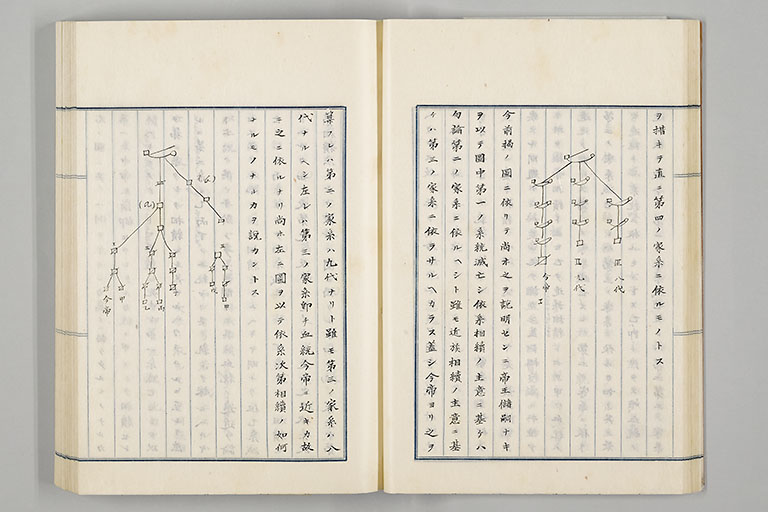 ヲ措キヲ直ニ第四ノ家系ニ依ルモノトス
Ⅲ 八代
Ⅱ 九代
今帝 Ⅰ
今前掲ノ圖ニ依リテ尚ホ之ヲ説明センニ帝王儲嗣ナキ
ヲ以テ圖中第一ノ系統滅亡シ依系相續ノ主意ニ基ケハ
勿論第二ノ家系ニ依ルヘシト雖モ近族相續ノ主意ニ基
ケハ第三ノ家系ニ依ヲサルヘカラス蓋シ今帝ヨリ之ヲ
算フレハ第二ノ家系ハ九代ナリト雖モ第三ノ家系ハ八
代ナルヘシ左レハ第三ノ家系即チ血統今帝ニ近キカ故
ニ之ニ依ルナリ尚ホ左ニ圖ヲ以テ依系次第相續ノ如何
ナルモノナルカヲ説カントス
今帝
甲
乙
丙
丁
戊